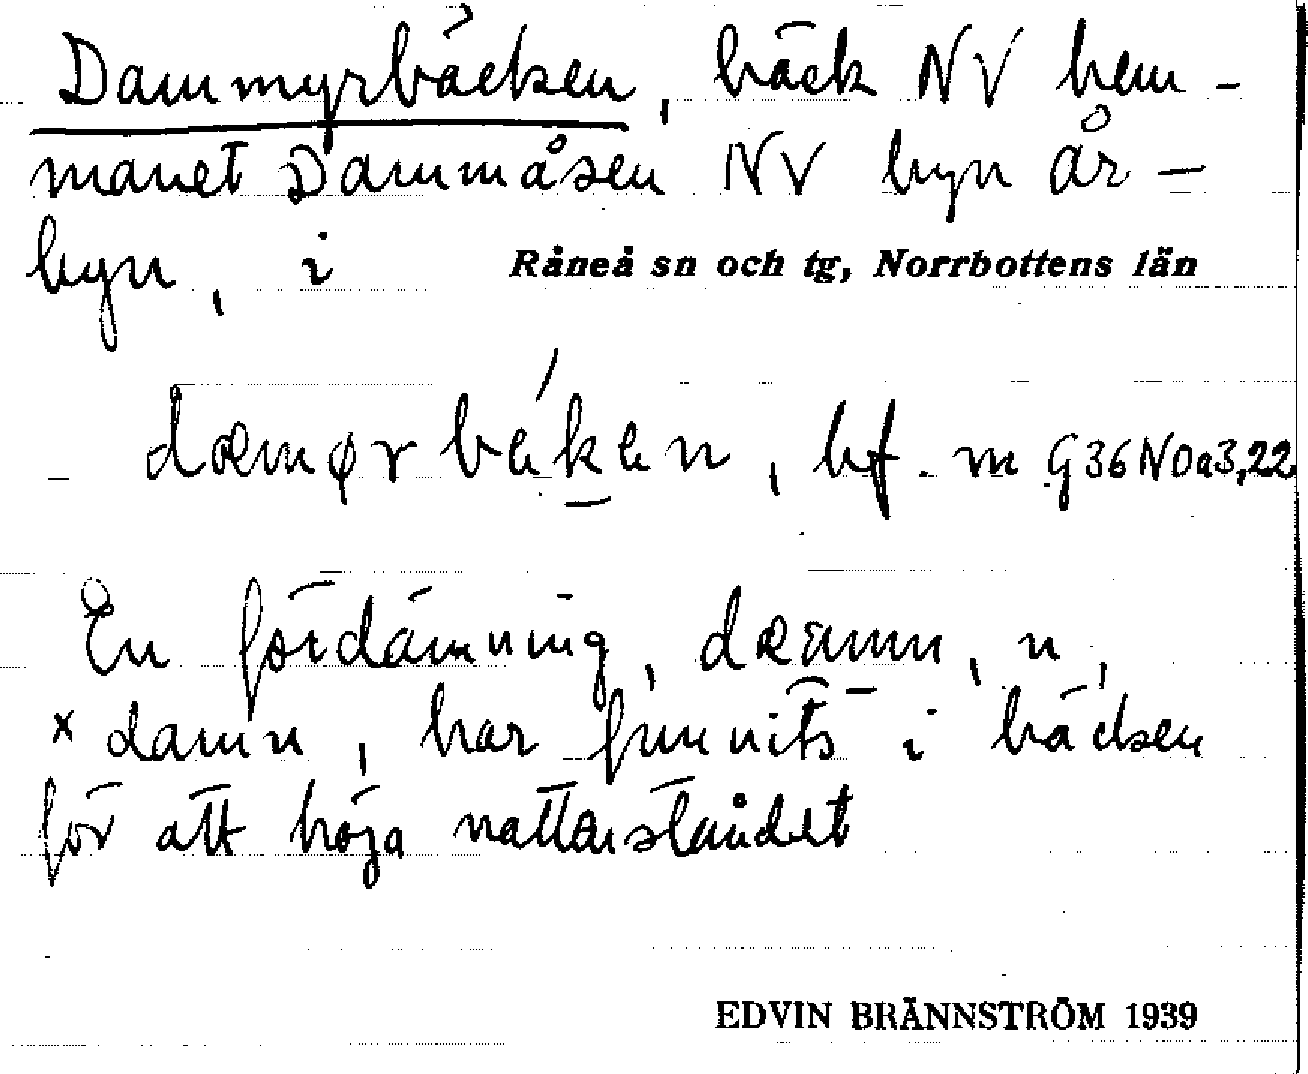 Dammyrbäcken, bäck NV hem-
manet Dammåsen NV byn År-
byn, i Råneå sn och tg, Norrbottens län
bf. m G36NOa3,22
En fördämning, dæmn, n,
x damn, har funnits i bäcken
för att höja vattenståndet
EDVIN BRÄNNSTRÖM 1939